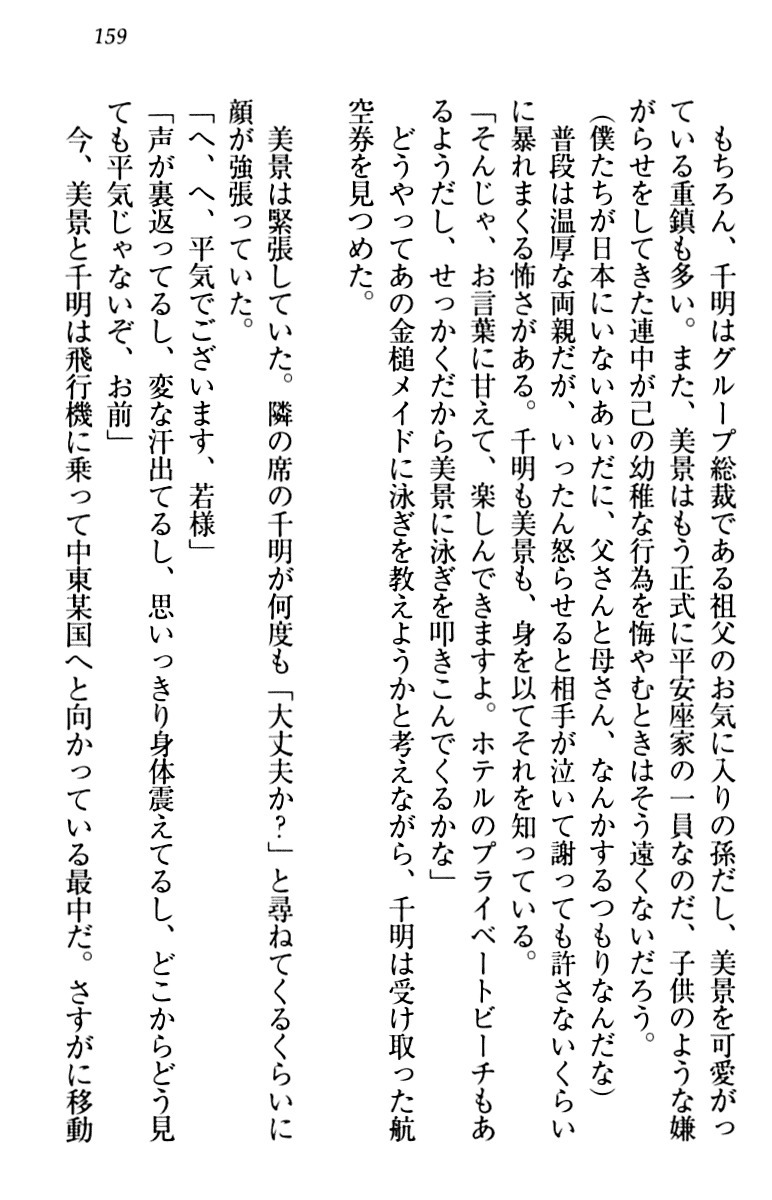 159
もちろん、千明はグループ総裁である祖父のお気に入りの孫だし、美景を可愛がっ
ている重鎮も多い。また、美景はもう正式に平安座家の一員なのだ、子供のような嫌
がらせをしてきた連中が己の幼稚な行為を悔やむときはそう遠くないだろう。
(僕たちが日本にいないあいだに、父さんと母さん、なんかするつもりなんだな)
普段は温厚な両親だが、いったん怒らせると相手が泣いて謝っても許さないくらい
に暴れまくる怖さがある。千明も美景も、身を以てそれを知っている。
「そんじゃ、お言葉に甘えて、楽しんできますよ。ホテルのプライベートビーチもあ
るようだし、せっかくだから美景に泳ぎを叩きこんでくるかな」
どうやってあの金槌メイドに泳ぎを教えようかと考えながら、千明は受け取った航
空券を見つめた。
美景は緊張していた。隣の席の千明が何度も「大丈夫か?」と尋ねてくるくらいに
顔が強張っていた。
「へ、へ、平気でございます、若様」
「声が裏返ってるし、変な汗出てるし、思いっきり身体震えてるし、どこからどう見
ても平気じゃないぞ、お前」
今、美景と千明は飛行機に乗って中東某国へと向かっている最中だ。さすがに移動